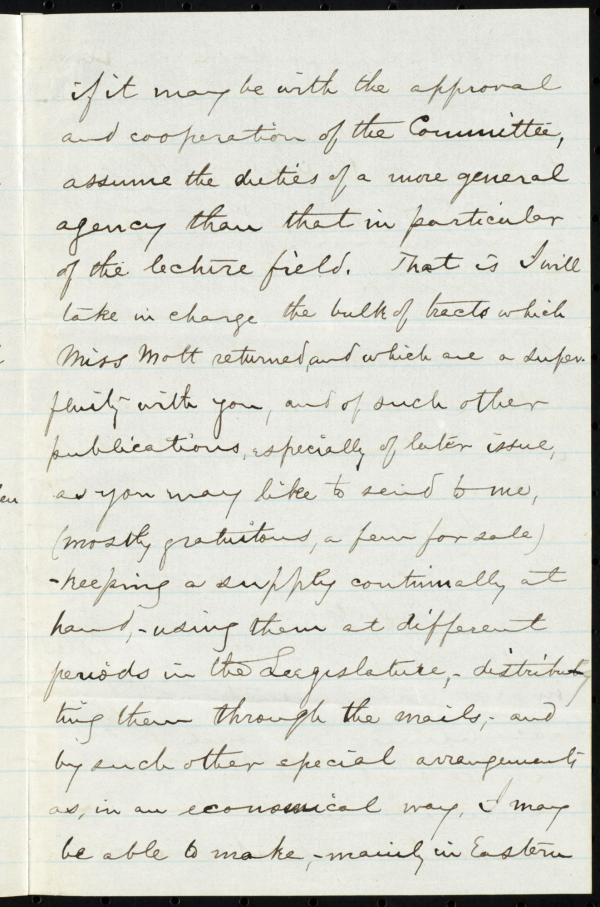 if it may be with the approval
and cooperation of the Committee,
assume the duties of a more general
agency than that in particular
of the lecture field. That is I will
take in charge the bulk of tracts which
Miss Mott returned, and which are a super-
fluity with you, and of such other
publications, especially of later issue,
as you may like to send to me,
(mostly gratuitous, a few for sale)
-keeping a supply continually at
hand,-using them at different
periods in the Legislature,- distribu-
ting them through the mails,- and
by such other special arrangements
as, in an economical way, I may
be able to make,-mainly in Eastern